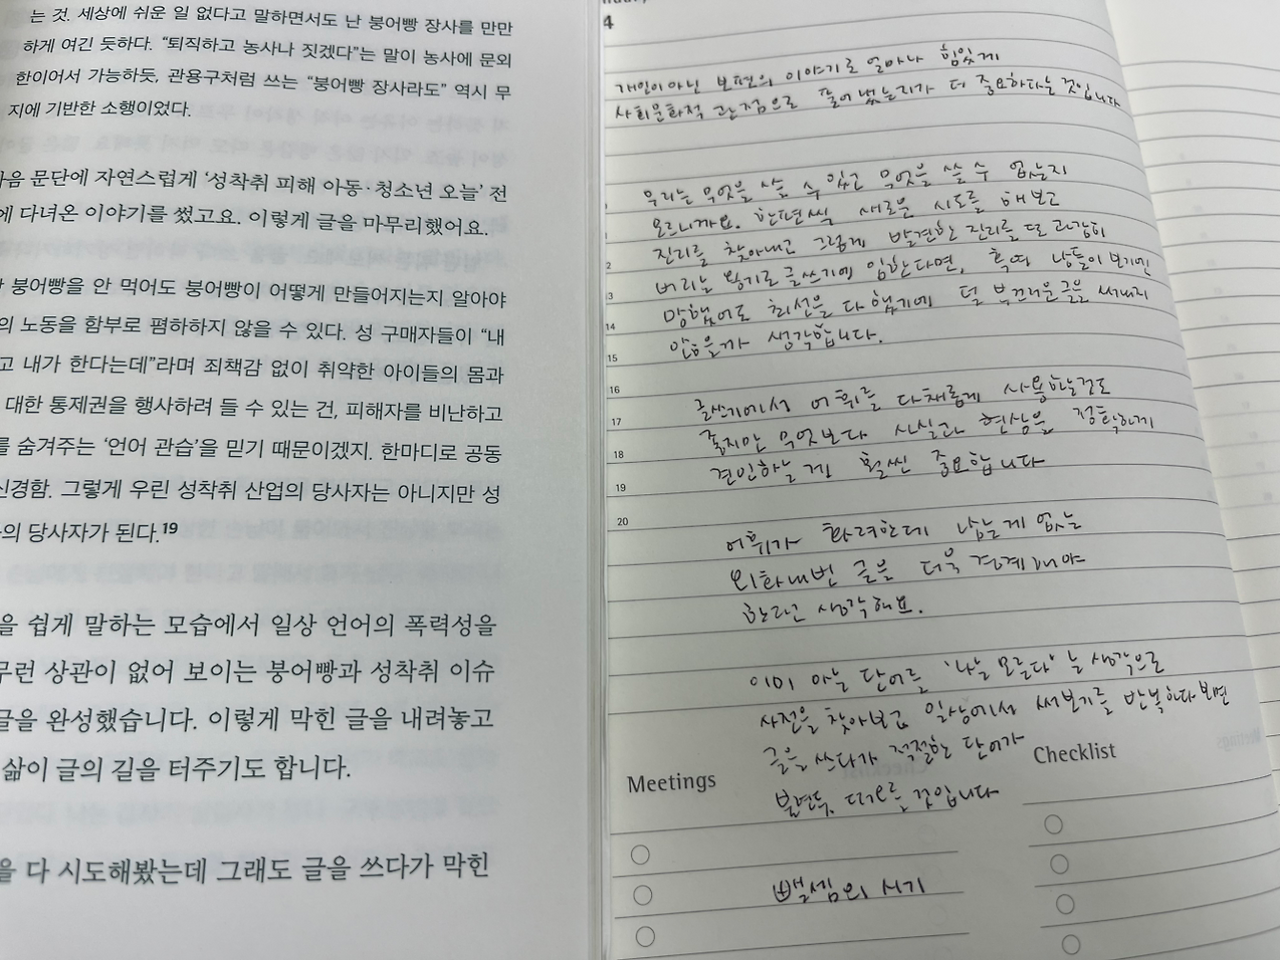 는 것. 세상에 쉬운 일 없다고 말하면서도 난 붕어빵 장사를 만만
하게 여긴 듯하다. “퇴직하고 농사나 짓겠다”는 말이 농사에 문외
한이어서 가능하듯, 관용구처럼 쓰는 “붕어빵 장사라도” 역시 무
지에 기반한 소행이었다.
음 문단에 자연스럽게 ‘성착취 피해 아동·청소년 오늘’ 전
에 다녀온 이야기를 썼고요. 이렇게 글을 마무리했어요.
붕어빵을 안 먹어도 붕어빵이 어떻게 만들어지는지 알아야
의 노동을 함부로 폄하하지 않을 수 있다. 성 구매자들이 “내
고 내가 한다는데”라며 죄책감 없이 취약한 아이들의 몸과
대한 통제권을 행사하려 들 수 있는 건, 피해자를 비난하고
를 숨겨주는 ‘언어 관습’을 믿기 때문이겠지. 한마디로 공동
신경함. 그렇게 우린 성착취 산업의 당사자는 아니지만 성
의 당사자가 된다.19
을 쉽게 말하는 모습에서 일상 언어의 폭력성을
무런 상관이 없어 보이는 붕어빵과 성착취 이슈
글을 완성했습니다. 이렇게 막힌 글을 내려놓고
삶이 글의 길을 터주기도 합니다.
을 다 시도해봤는데 그래도 글을 쓰다가 막힌
4
개인이 아닌 보편의 이야기로 얼마나 힘있게
사회문화적 관점으로 끌어냈는지가 더 중요하다는 것입니다
우리는 무엇을 쓸 수 있고 무엇을 쓸 수 없는지
모르니까요. 한편씩 새로운 시도를 해보고
진리를 찾아내고 그렇게 발견한 진리를 또 과감히
버리는 용기로 글쓰기에 임한다면, 혹여 남들이 보기엔
망했어도 최선을 다했기에 덜 부끄러운 글을 써내리
않을까 생각합니다.
글쓰기에서 어휘를 다채롭게 사용하는것도
좋지만 무엇보다 사실과 현상을 정확하게
견인하는게 훨씬 중요합니다
어휘가 화려한데 남는게 없는
외화내빈 글을 더욱 경계해야
한다고 생각해요.
이미 아는 단어를 '나는 모른다'는 생각으로
사전을 찾아보고 일상에서 써보기를 반복하다보면
글을 쓰다가 적절한 단어가
불현듯 떠오를 것입니다
뺄셈의 서기
2
3
14
15
16
17
18
19
20
Meetings
Checklist